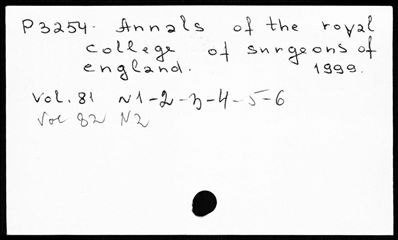 P3254. Annals of the royal
college of surgeons of
england. 1999.
Vol. 81 N1-2-3-4-5-6
Vol 82 N2